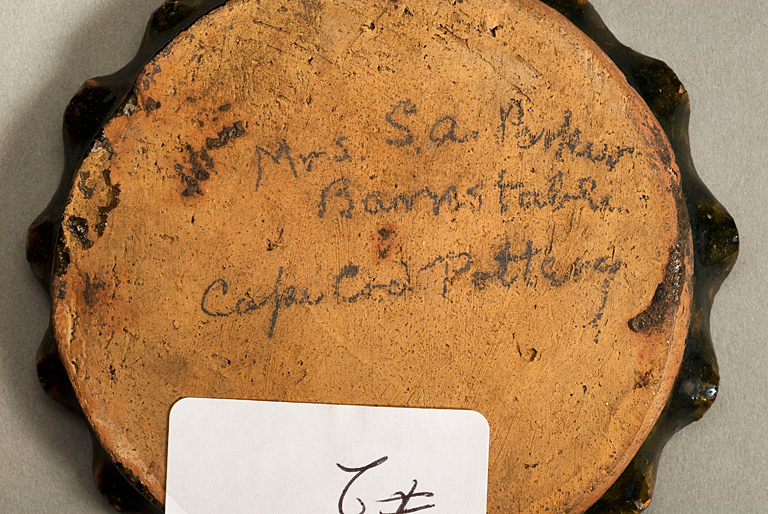 Mrs. S.A. Parker
Barnstable
Cape Cod Pottery